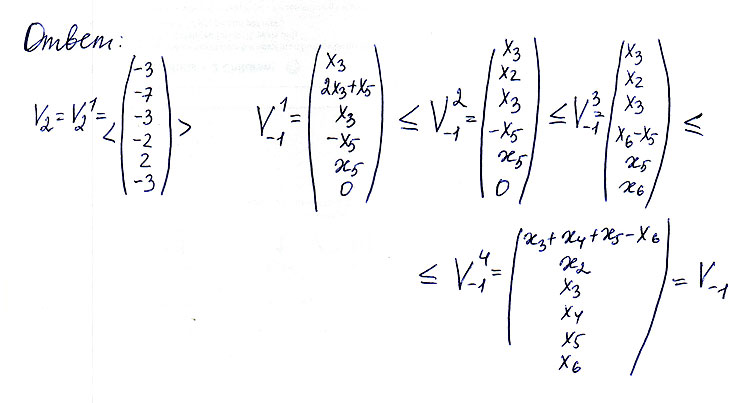 Ответ:
V₂ = V₂¹ = < (-3 -7 -3 -2 2 -3) > V₋₁¹ = (x₃ 2x₃+x₅ x₃ -x₅ x₅ 0) ≤ V₋₁² = (x₃ x₂ x₃ -x₅ x₅ 0) ≤ V₋₁³ = (x₃ x₂ x₃ x₆-x₅ x₅ x₆) ≤
≤ V₋₁⁴ = (x₃+x₄+x₅-x₆ x₂ x₃ x₄ x₅ x₆) = V₋₁